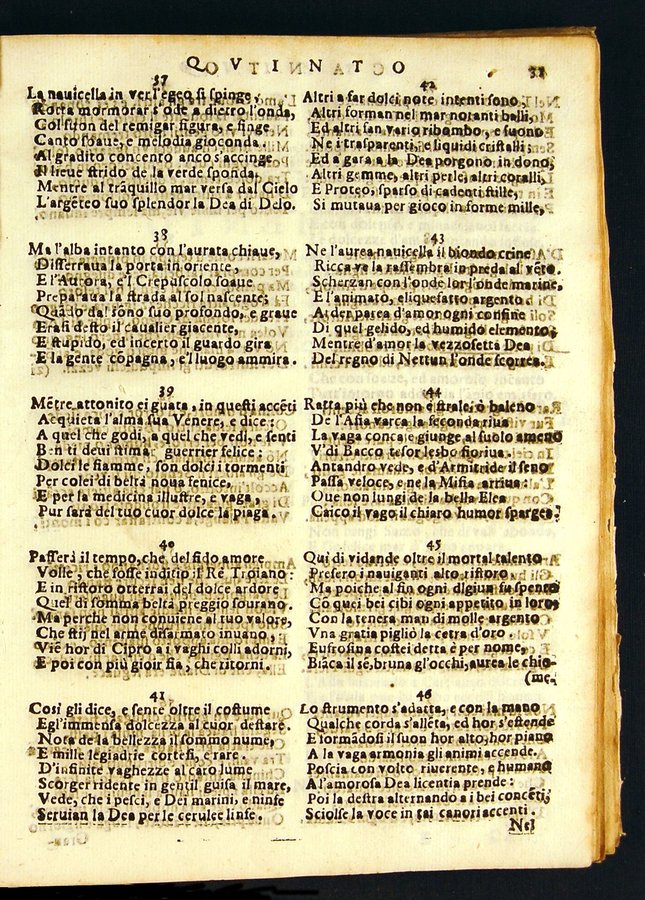 QVINTO
37
La nauicella in ver l'egeo si spinge,
Rotta mormorar s'ode a dietro l'onda,
Col suon del remigar figura, e finge
Canto soaue, e melodia gioconda.
Al gradito concento anco s'accinge
Il lieue strido de la verde sponda,
Mentre al trãquillo mar versa dal Cielo
L'argẽteo suo splendor la Dea di Delo.
38
Ma l'alba intanto con l'aurata chiaue,
Disserraua la porta in oriente,
E l'Aurora, e'l Crepuscolo soaue
Preparaua la strada al sol nascente;
Quãdo dal sono suo profondo, e graue
Erasi desto il caualier giacente,
E stupido, ed incerto il guardo gira
E la gente cõpagna, e'l luogo ammira.
39
Mẽtre attonito ei guata, in questi accẽti
Acquieta l'alma sua Venere, e dice:
A quel che godi, a quel che vedi, e senti
Ben ti deui stima guerrier felice:
Dolci le fiamme, son dolci i tormenti
Per colei di beltà noua fenice,
E per la medicina illustre, e vaga,
Pur sarà del tuo cuor dolce la piaga.
40
Passerà il tempo, che del fido amore
Volse, che fosse inditio il Rè Troiano:
E in ristoro otterrai del dolce ardore
Quel di somma beltà preggio sourano.
Ma perche non conuiene al tuo valore,
Che stij nel arme disarmato inuano,
Viẽ hor di Cipro a i vaghi colli adorni,
E poi con più gioir fia, che ritorni.
41
Così gli dice, e sente oltre il costume
Egl'immensa dolcezza al cuor destare.
Nota de la bellezza il sommo nume,
E mille legiadrie cortesi, e rare.
D'infinite vaghezze al caro lume
Scorger ridente in gentil guisa il mare,
Vede, che i pesci, e Dei marini, e ninfe
Seruian la Dea per le cerulee linfe.
42
Altri a far dolci note intenti sono,
Altri forman nel mar notanti balli,
Ed altri fan vario ribombo, e suono
Ne i trasparenti, e liquidi cristalli;
Ed a gara a la Dea porgono in dono,
Altri gemme, altri perle, altri coralli,
E Proteo, sparso di cadenti stille,
Si mutaua per gioco in forme mille,
43
Ne l'aurea nauicella il biondo crine
Ricca ve la rassembra in preda al vẽto.
Scherzan con l'onde lor l'onde marine,
E l'animato, e liquefatto argento
Arder parea d'amor ogni confine
Di quel gelido, ed humido elemento;
Mentre d'amor la vezzosetta Dea
Del regno di Nettun l'onde scorrea.
44
Ratta più che non è strale, ò baleno
De l'Asia varca la seconda riua
La vaga conca e giunge al suolo ameno
V'di Bacco tesor lesbo fioriua.
Antandro vede, e d'Armitride il seno
Passa veloce, e ne la Misia arriua:
Oue non lungi de la bella Elea
Caico il vago il chiaro humor sparge.
45
Qui di vidande oltre il mortal talento
Presero i nauiganti alto ristoro
Ma poiche al fin ogni digiun fu spento
Cõ quei bei cibi ogni appetito in loro,
Con la tenera man di molle argento
Vna gratia pigliò la cetra d'oro.
Eufrosina costei detta è per nome,
Biãca il sé, bruna gl'occhi, aurea le chio-
(me.
46
Lo strumento s'adatta, e con la mano
Qualche corda s'allẽta, ed hor s'estende
E formãdosi il suon hor alto, hor piano
A la vaga armonia gli animi accende.
Poscia con volto riuerente, e humano
A l'amorosa Dea licentia prende:
Poi la destra alternando a i bei concẽti,
Sciolse la voce in tai canori accenti.
Nel